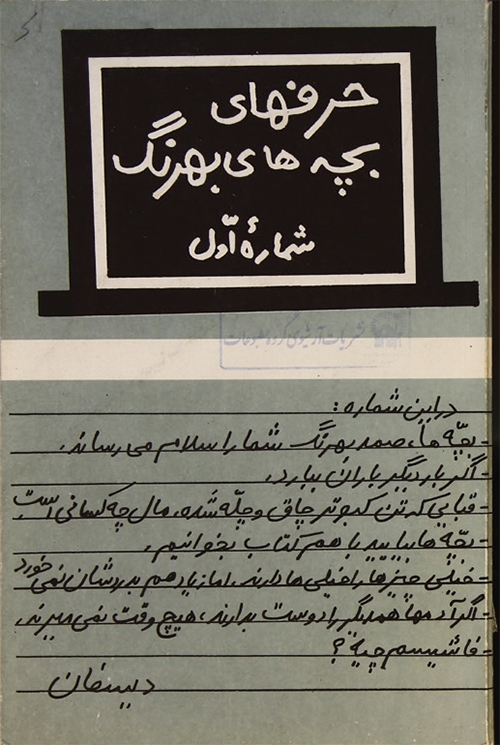 حرفهای
بچه های بهرنگ
شمارهٔ اوّل
در این شماره:
- بچّه ها، صمد بهرنگ شما را سلام می رساند.
- اگر بار دیگر باران ببارد.
- قبایی که تن کبوتر چاق و چلّه شده، مال چه کسانی است
- بچّه ها بیایید با هم کتاب بخوانیم.
- خیلی چیزها را خیلی ها دارند، اما زیاد هم بدردشان نمی خورد
- اگر آدمها همدیگر را دوست بدارند، هیچ وقت نمی میرند.
- فاشیسم چیه؟